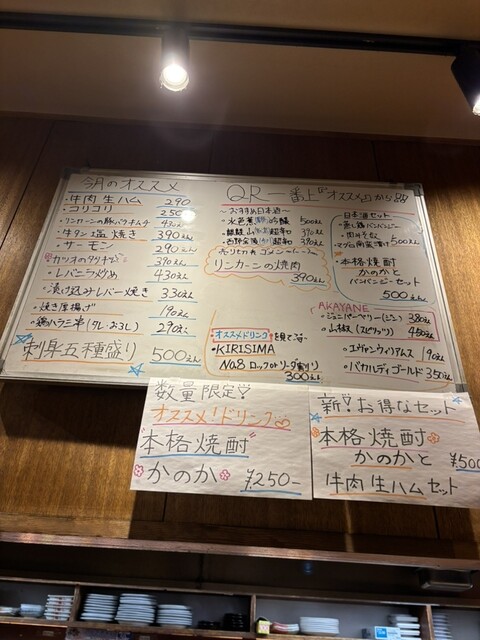 今月のオススメ
・牛肉生ハム 290
・コリコリ 250
・リンカーンの豚バラキムチ 430えん
・牛タン塩焼き 390えん
・サーモン 290えん
・カツオのタタキ 390えん
・レバニラ炒め 430えん
・漬け込みレバー焼き 330えん
・焼き厚揚げ 190えん
・鶏ハラミ串(タレ・おろし) 290えん
刺身五種盛り 500えん
QR一番上『オススメ』から
〜おすすめ日本酒〜
リンカーンの焼肉
390えん
オススメドリンクを見て
・KIRISIMA
No.8 ロック or ソーダ割り
300えん
日本酒セット
500えん
・本格焼酎
かのかと
バンバンジーセット
500えん
AKAYANE
・ジュニパーベリー(ジン) 380えん
・山椒(スピリッツ) 450えん
・エヴァンウィリアムス 190えん
・バカルディゴールド 350えん
数量限定♡
オススメ!ドリンク
"本格焼酎"
かのか ¥250-
新!お得なセット
本格焼酎
かのかと ¥500
牛肉生ハムセット